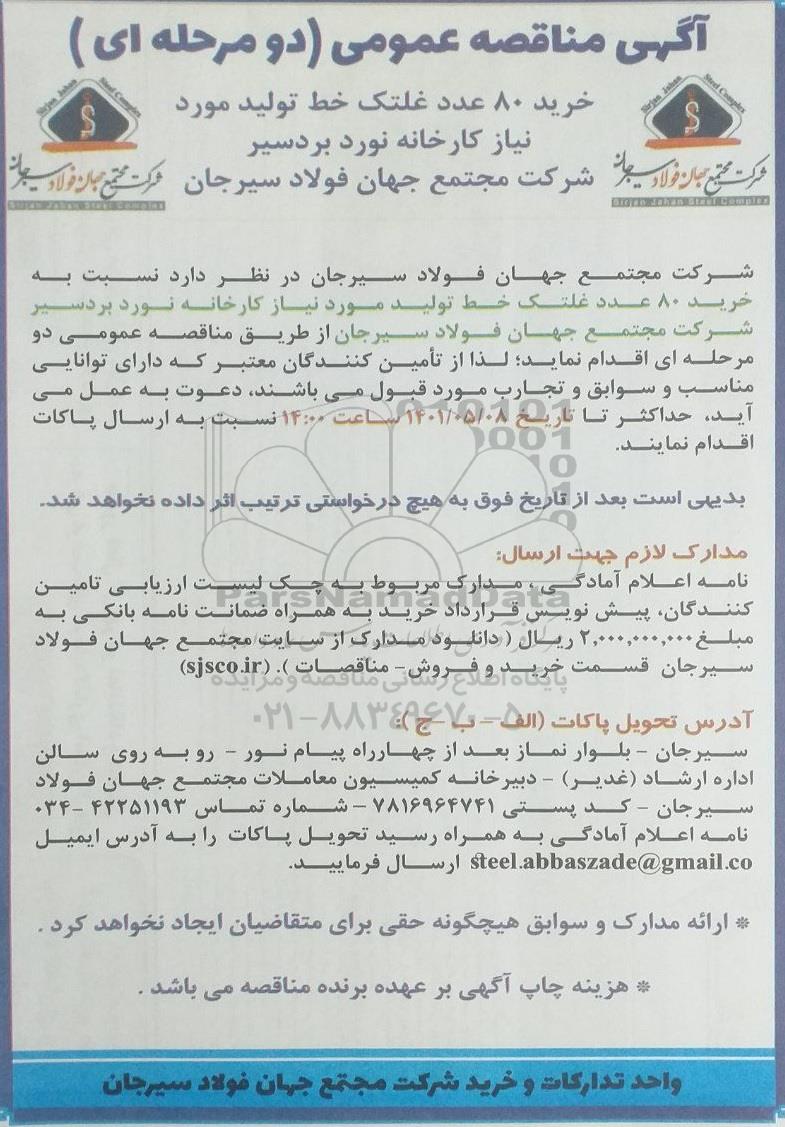 آگهی مناقصه عمومی (دو مرحله ای)
خرید ۸۰ عدد غلتک خط تولید مورد
نیاز کارخانه نورد بردسیر
شرکت مجتمع جهان فولاد سیرجان
Sirjan Jahan Steel Complex
شرکت مجتمع جهان فولاد سیرجان
Sirjan Jahan Steel Complex
Sirjan Jahan Steel Complex
شرکت مجتمع جهان فولاد سیرجان
Sirjan Jahan Steel Complex
شرکت مجتمع جهان فولاد سیرجان در نظر دارد نسبت به
خرید ۸۰ عدد غلتک خط تولید مورد نیاز کارخانه نورد بردسیر
شرکت مجتمع جهان فولاد سیرجان از طریق مناقصه عمومی دو
مرحله ای اقدام نماید؛ لذا از تأمین کنندگان معتبر که دارای توانایی
مناسب و سوابق و تجارب مورد قبول می باشند، دعوت به عمل می
آید، حداکثر تا تاریخ ۱۴۰۱/۰۵/۰۸ ساعت ۱۴:۰۰ نسبت به ارسال پاکات
اقدام نمایند.
بدیهی است بعد از تاریخ فوق به هیچ درخواستی ترتیب اثر داده نخواهد شد.
مدارک لازم جهت ارسال:
نامه اعلام آمادگی، مدارک مربوط به چک لیست ارزیابی تامین
کنندگان، پیش نویس قرارداد خرید به همراه ضمانت نامه بانکی به
مبلغ ۲,۰۰۰,۰۰۰,۰۰۰ ریال ( دانلود مدارک از سایت مجتمع جهان فولاد
سیرجان قسمت خرید و فروش- مناقصات ). (sjsco.ir)
ParsNamadData
پایگاه اطلاع رسانی مناقصه و مزایده
۰۲۱-۸۸۳۴۹۶۷۰-۵
آدرس تحویل پاکات (الف - ب - ج ):
سیرجان - بلوار نماز بعد از چهارراه پیام نور - رو به روی سالن
اداره ارشاد (غدیر) - دبیرخانه کمیسیون معاملات مجتمع جهان فولاد
سیرجان - کد پستی ۷۸۱۶۹۶۴۷۴۱ - شماره تماس ۴۲۲۵۱۱۹۳ -۰۳۴
نامه اعلام آمادگی به همراه رسید تحویل پاکات را به آدرس ایمیل
steel.abbaszade@gmail.co ارسال فرمایید.
* ارائه مدارک و سوابق هیچگونه حقی برای متقاضیان ایجاد نخواهد کرد .
* هزینه چاپ آگهی بر عهده برنده مناقصه می باشد .
واحد تدارکات و خرید شرکت مجتمع جهان فولاد سیرجان